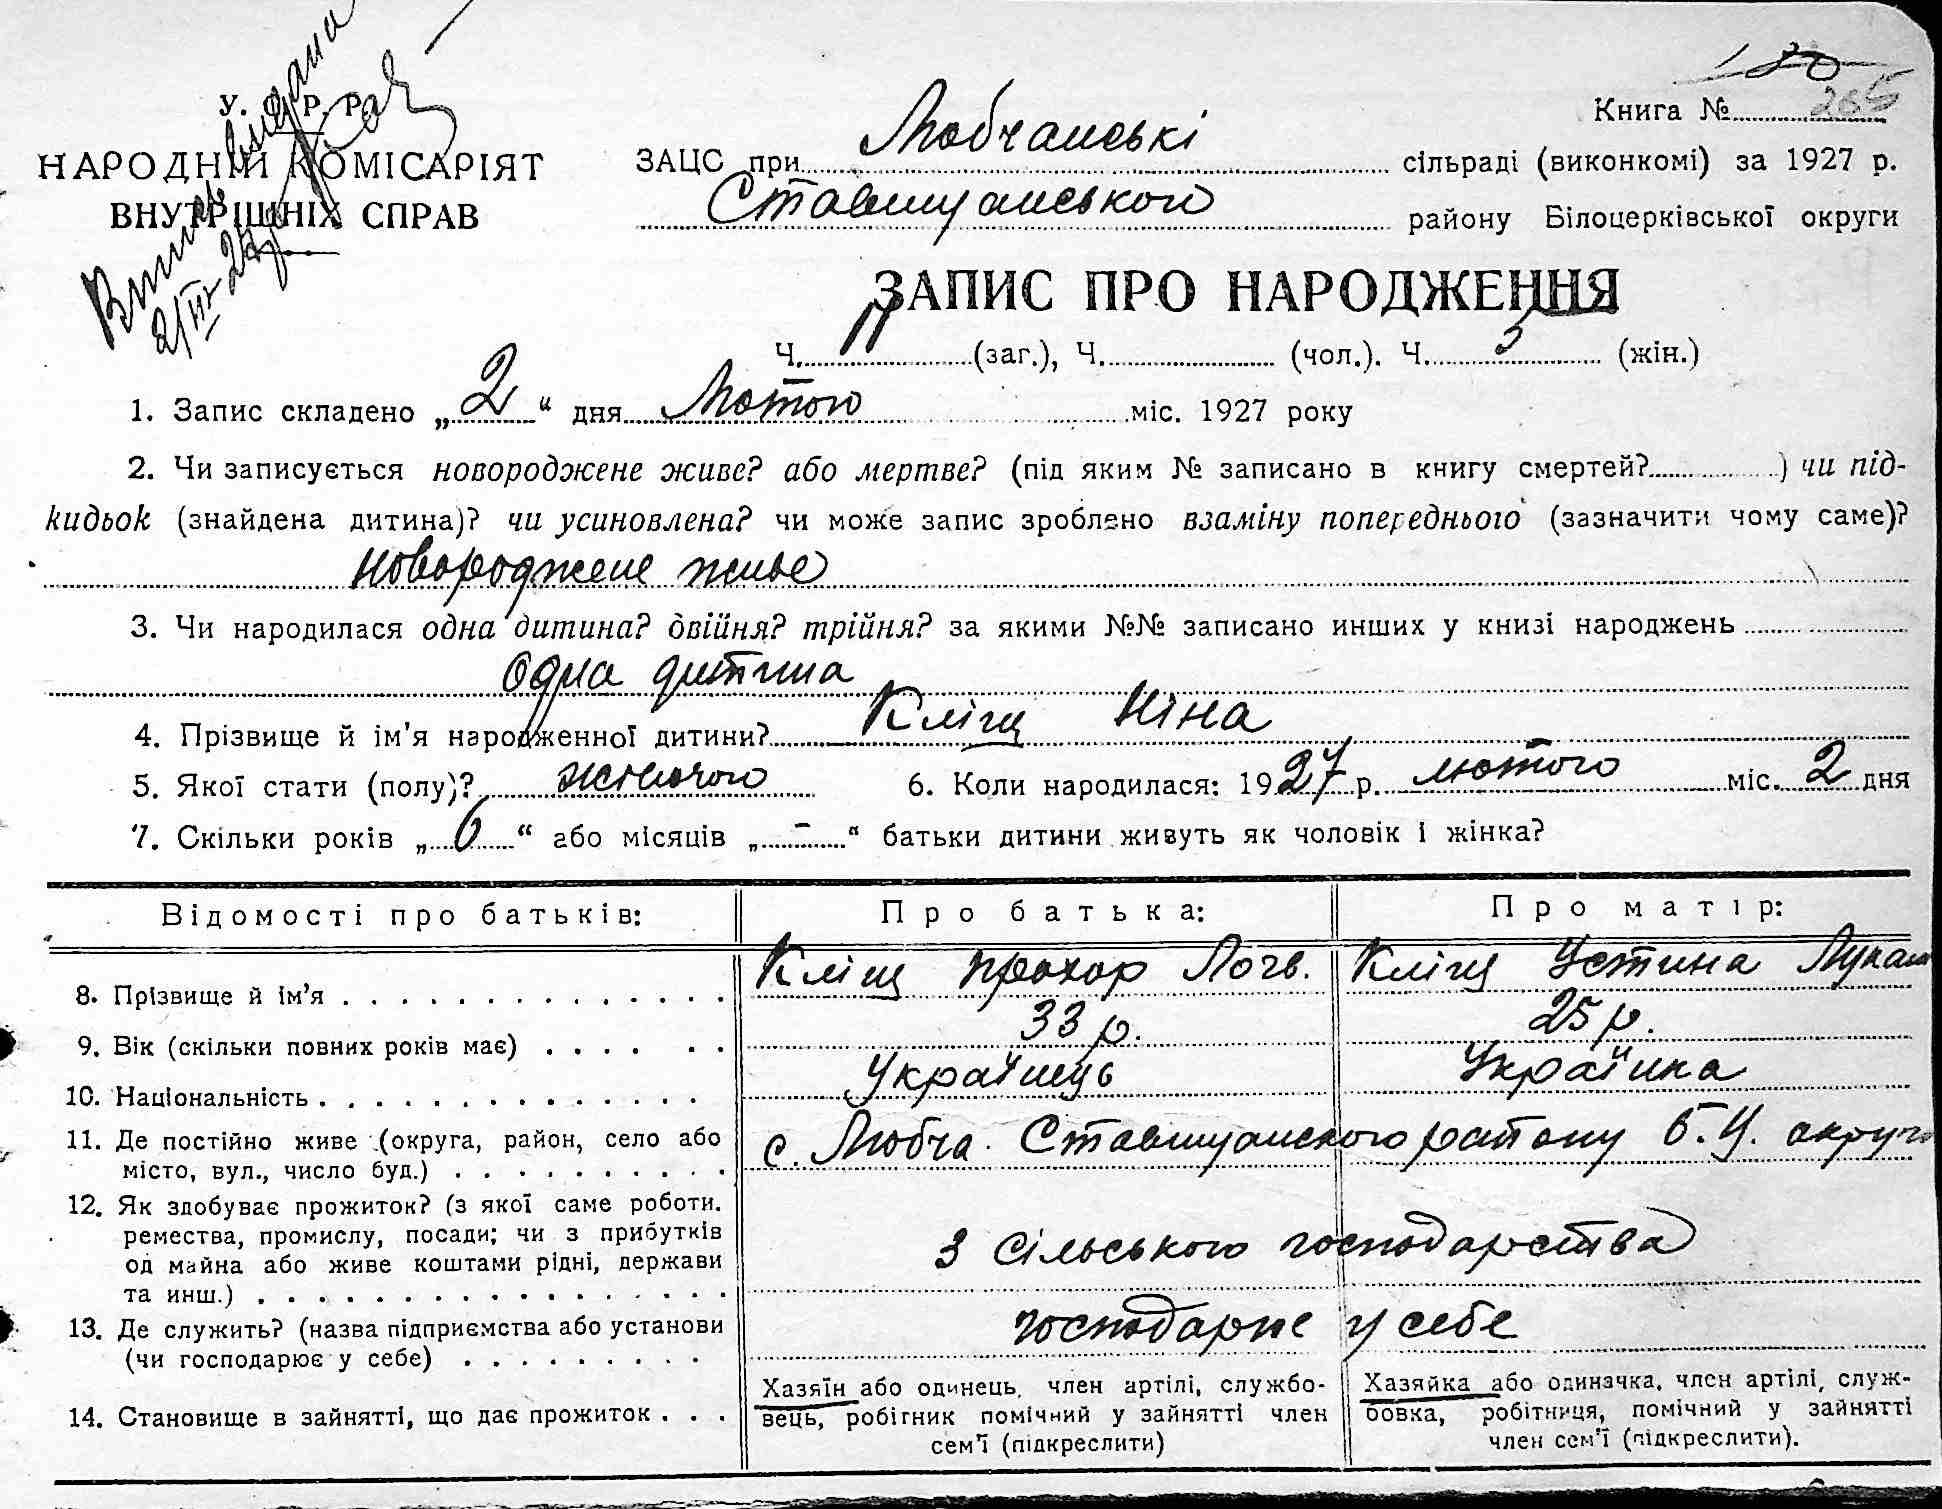 Випис видана
2/III-27
У. С. Р. Р.
НАРОДНІЙ КОМІСАРІЯТ
ВНУТРІШНІХ СПРАВ
180
Книга № 265
ЗАЦС при Любчанські сільраді (виконкомі) за 1927 р.
Ставищанського району Білоцерківської округи
ЗАПИС ПРО НАРОДЖЕННЯ
Ч. 11 (заг.), Ч. (чол.). Ч. 5 (жін.)
1. Запис складено „2“ дня Лютого міс. 1927 року
2. Чи записується новороджене живе? або мертве? (під яким № записано в книгу смертей? ) чи під-
кидьок (знайдена дитина)? чи усиновлена? чи може запис зроблено взаміну попереднього (зазначити чому саме)?
новороджене живе
3. Чи народилася одна дитина? двійня? трійня? за якими №№ записано инших у книзі народжень
Одна дитина
4. Прізвище й ім'я народженної дитини? Кліщ Ніна
5. Якої стати (полу)? жіночого 6. Коли народилася: 1927 р. лютого міс. 2 дня
7. Скільки років „6“ або місяців „-“ батьки дитини живуть як чоловік і жінка?
Відомості про батьків: Про батька: Про матір:
8. Прізвище й ім'я Кліщ Прохор Логв. Кліщ Устина Лукаш
9. Вік (скільки повних років має) 33 р. 25 р.
10. Національність Українець Українка
11. Де постійно живе (округа, район, село або
місто, вул., число буд.) с. Любча Ставищанского району Б.-Ц. округи
12. Як здобуває прожиток? (з якої саме роботи.
ремества, промислу, посади; чи з прибутків
од майна або живе коштами рідні, держави
та инш.) з сільського господарства
13. Де служить? (назва підприємства або установи
(чи господарює у себе) господарює у себе
14. Становище в зайнятті, що дає прожиток
Хазяїн або одинець, член артілі, службо-
вець, робітник помічний у зайнятті член
сем'ї (підкреслити)
Хазяйка або одиначка, член артілі, служ-
бовка, робітниця, помічний у зайнятті
член сем'ї (підкреслити).